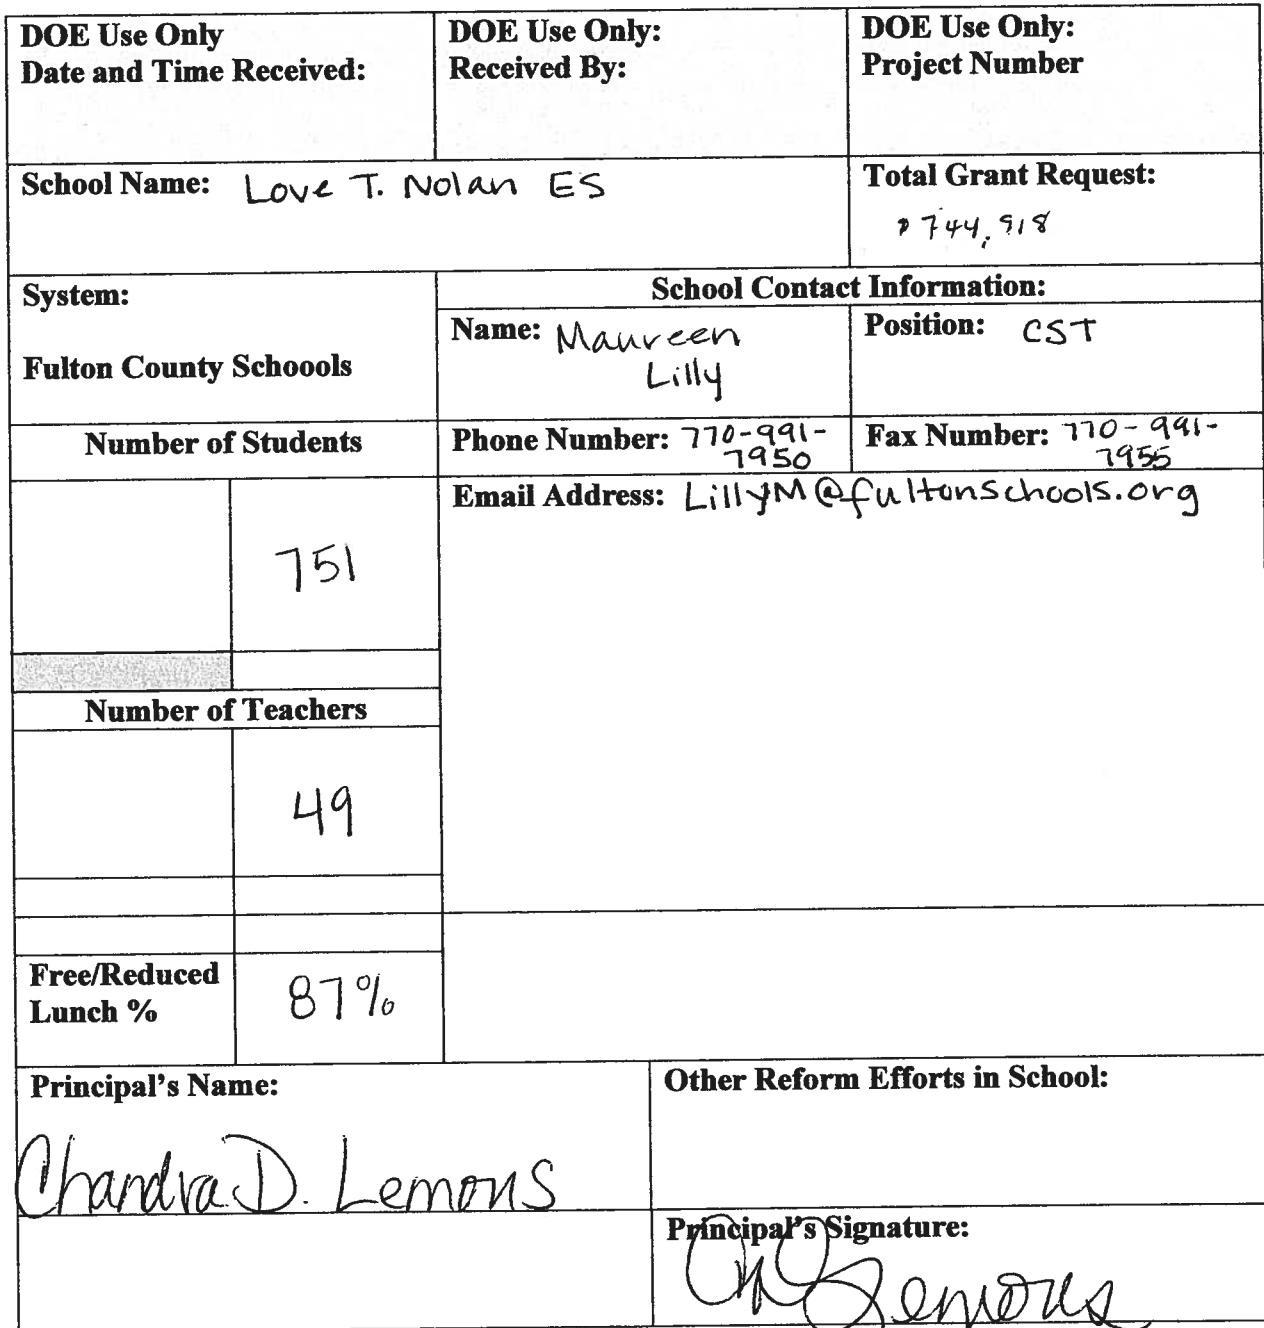 DOE Use Only
Date and Time Received:
DOE Use Only:
Received By:
DOE Use Only:
Project Number
School Name: Love T. Nolan ES
Total Grant Request:
$744,918
System:
Fulton County Schoools
School Contact Information:
Name: Maureen
Lilly
Position: CST
Number of Students
Phone Number: 770-991-
7950
Fax Number: 770-991-
7955
751
Email Address: LillyM@fultonschools.org
Number of Teachers
49
Free/Reduced
Lunch %
87%
Principal's Name:
Chandra D. Lemons
Other Reform Efforts in School:
Principal's Signature:
CD Lemons